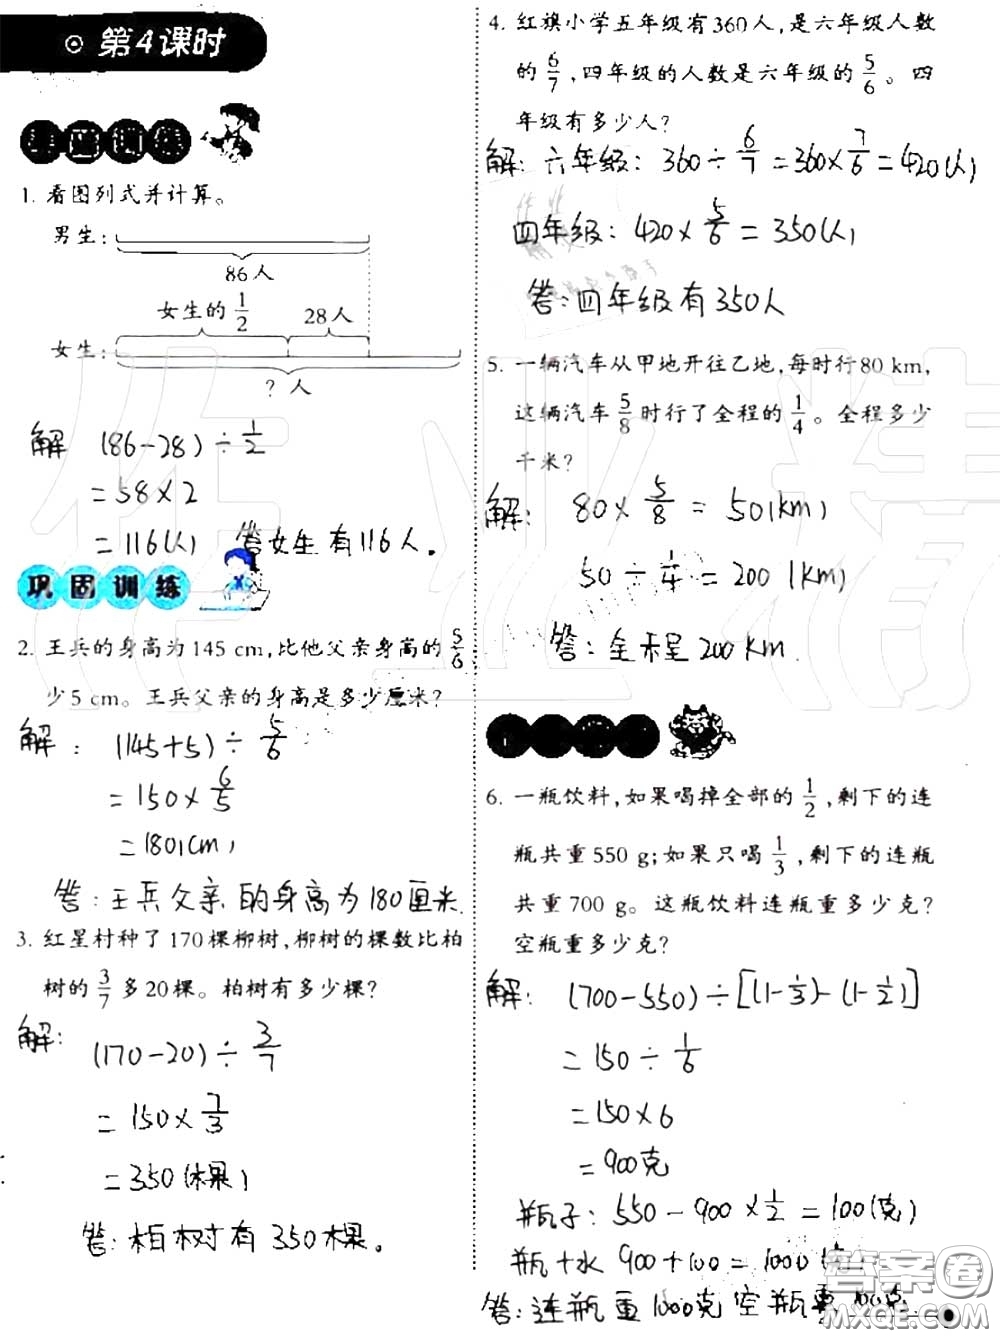 第4课时
1. 看图列式并计算。
男生:
86人
女生的 1/2 28人
女生:
? 人
解 (86-28) ÷ 1/2
= 58 × 2
= 116(人) 答女生有116人.
巩固训练
2. 王兵的身高为145 cm,比他父亲身高的 5/6
少5 cm。王兵父亲的身高是多少厘米?
解: (145+5) ÷ 5/6
= 150 × 6/5
= 180(cm)
答:王兵父亲的身高为180厘米.
3. 红星村种了170棵柳树,柳树的棵数比柏
树的 3/7 多20棵。柏树有多少棵?
解: (170-20) ÷ 3/7
= 150 × 7/3
= 350(棵)
答:柏树有350棵。
4. 红旗小学五年级有360人,是六年级人数
的 6/7,四年级的人数是六年级的 5/6。四
年级有多少人?
解:六年级: 360 ÷ 6/7 = 360 × 7/6 = 420(人)
四年级: 420 × 5/6 = 350(人)
答:四年级有350人
5. 一辆汽车从甲地开往乙地,每时行80 km,
这辆汽车 5/8 时行了全程的 1/4。全程多少
千米?
解: 80 × 5/8 = 50(km)
50 ÷ 1/4 = 200 (km)
答:全程200Km.
6. 一瓶饮料,如果喝掉全部的 1/2,剩下的连
瓶共重550 g;如果只喝 1/3,剩下的连瓶
共重700 g。这瓶饮料连瓶重多少克?
空瓶重多少克?
解: (700-550) ÷ [(1-1/3)-(1-1/2)]
= 150 ÷ 1/6
= 150 × 6
= 900克
瓶子: 550 - 900 × 1/2 = 100(克)
瓶+水 900+100 = 1000 (克)
答:连瓶重1000克空瓶重100克
答案圈
MXQE.COM